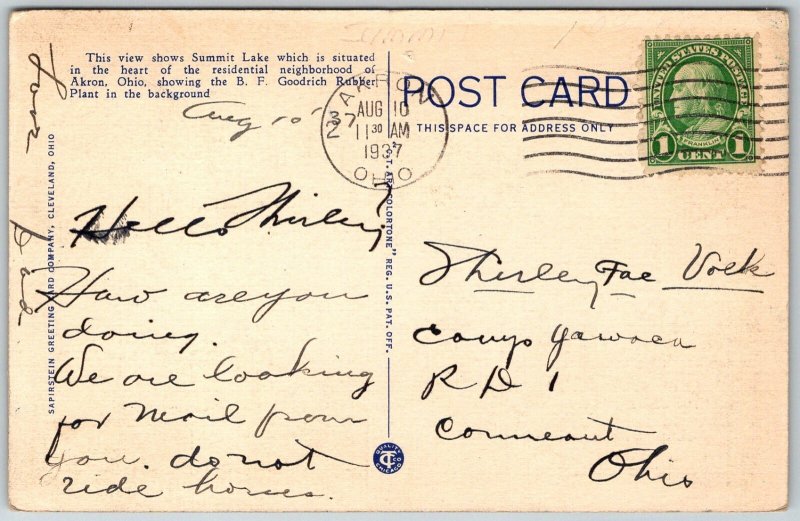 This view shows Summit Lake which is situated
in the heart of the residential neighborhood of
Akron, Ohio, showing the B. F. Goodrich Rubber
Plant in the background
Aug 10
Hello Shirley
How are you
doing.
We are looking
for mail from
you. do not
ride horses.
Love
Dad
SAPIRSTEIN GREETING CARD COMPANY, CLEVELAND, OHIO
AKRON
AUG 10
11 30 AM
1937
OHIO
C.T. ART "COLORTONE" REG. U.S. PAT. OFF.
QUALITY
CHICAGO
POST CARD
THIS SPACE FOR ADDRESS ONLY
UNITED STATES POSTAGE
FRANKLIN
1 CENT 1
Shirley Fae Volk
Camp
R D 1
Conneaut
Ohio